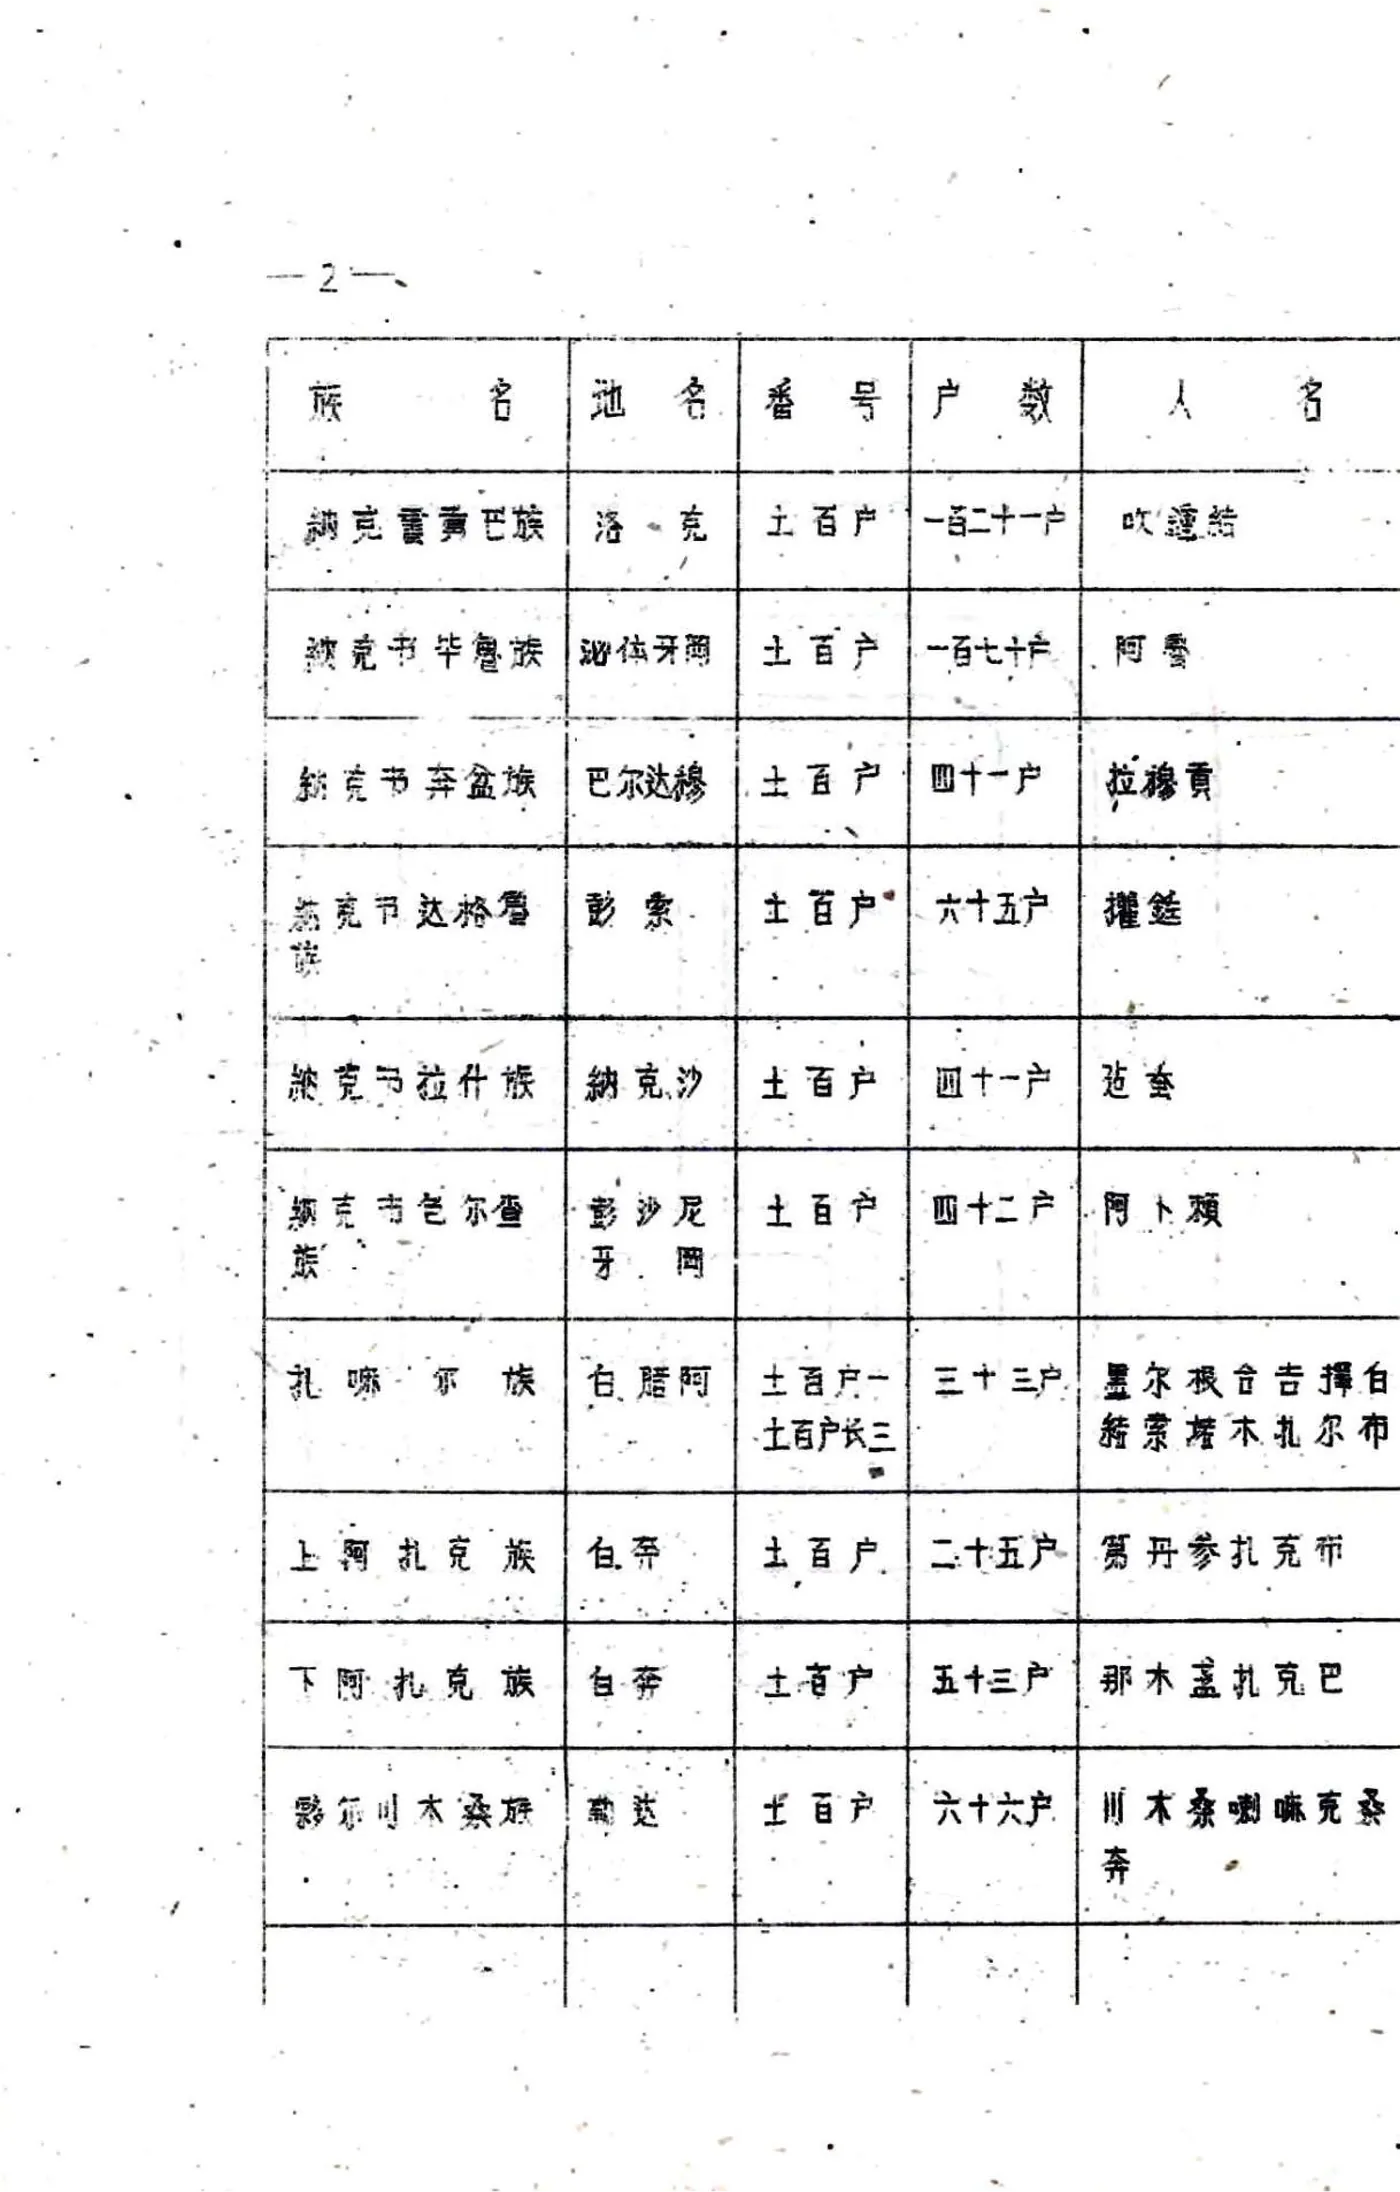 —2—
族名 地名 番号 户数 人名
納克書貢巴族 洛克 土百户 一百二十一户 吹連結
納克书毕魯族 泌体牙岡 土百户 一百七十户 阿魯
納克书奔盆族 巴尔达穆 土百户 四十一户 拉穆貢
納克书达格魯 彭索 土百户 六十五户
族
納克书拉什族 納克沙 土百户 四十一户
納克书色尔查 彭沙尼 土百户 四十二户 阿卜頼
族 牙岡
扎嘛尔族 白腊阿 土百户一 三十三户 墨尔根合吉擇白
土百户长三 結索塔木扎尔布
上阿扎克族 白奔 土百户 二十五户 第丹参扎克布
下阿扎克族 白奔 土百户 五十三户 那木盖扎克巴
夥尔川木桑族 勒达 土百户 六十六户 川木桑喇嘛克桑
奔